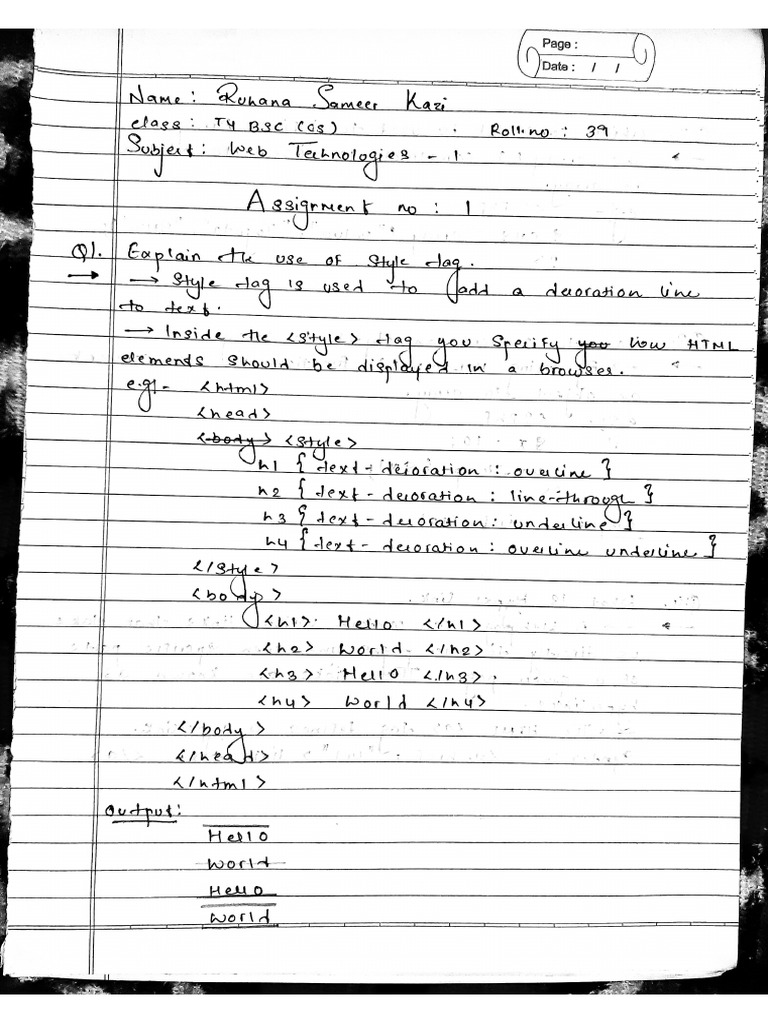 Page :
Date : / /
Name : Ruhana Sameer Kazi
class : TY BSC (CS) Roll.no : 39
Subject : Web Technologies - 1
Assignment no : 1
Q1. Explain the use of style tag.
→ → Style tag is used to add a decoration line
to text.
→ Inside the <style> tag you specify you how HTML
elements should be displayed in a browser.
e.g:- <html>
<head>
<body> <style>
h1 { text-decoration : overline }
h2 { text-decoration : line-through }
h3 { text-decoration : underline }
h4 { text-decoration : overline underline }
</style>
<body>
<h1> Hello </h1>
<h2> World </h2>
<h3> Hello </h3>
<h4> World </h4>
</body>
</head>
</html>
Output:
Hello
World
Hello
World